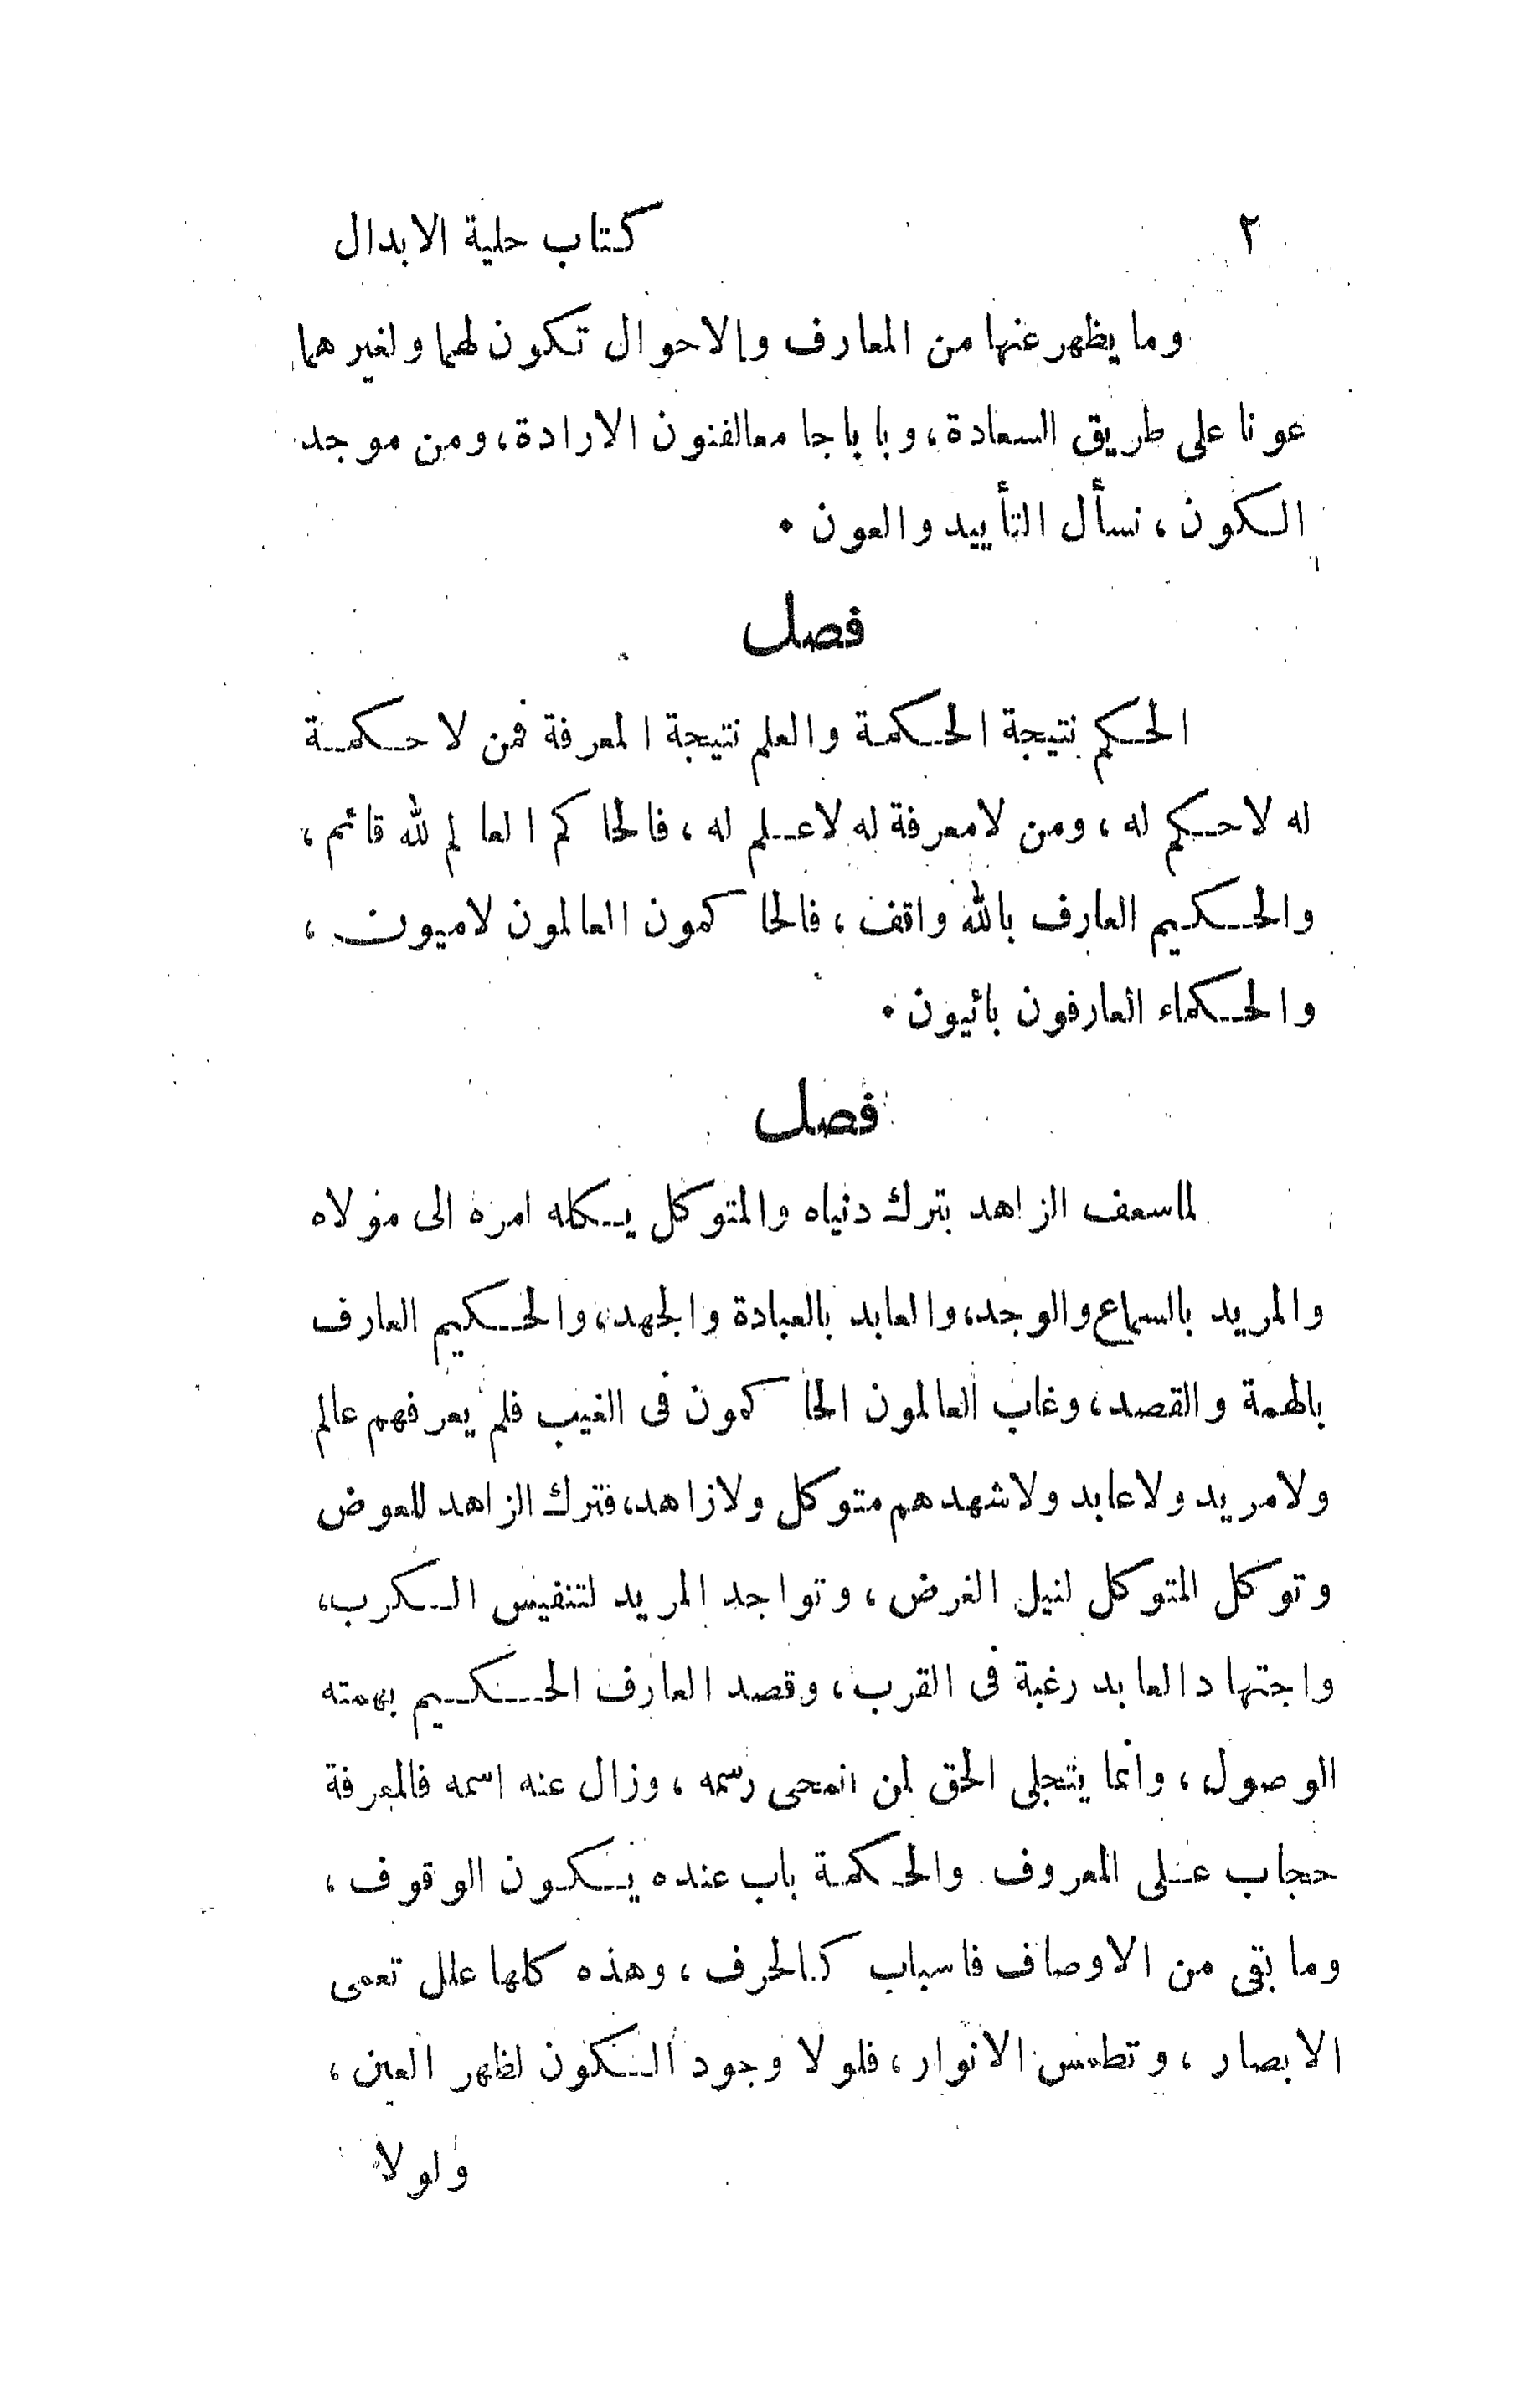 ٢ كتاب حلية الابدال
وما يظهر عنها من المعارف والاحوال تكون لهما ولغيرهما
عونا على طريق السعادة، وبابا جامعا لفنون الارادة، ومن موجد
الكون، نسأل التأييد والعون ٠
فصل
الحكم نتيجة الحكمة والعلم نتيجة المعرفة فمن لا حكمة
له لا حكم له، ومن لا معرفة له لا علم له، فالحاكم العالم لله قائم،
والحكيم العارف بالله واقف، فالحاكمون العالمون لاميون،
والحكماء العارفون بائيون ٠
فصل
لما سعف الزاهد بترك دنياه والمتوكل يكله امره الى مولاه
والمريد بالسماع والوجد، والعابد بالعبادة والجهد، والحكيم العارف
بالهمة والقصد، وغاب العالمون الحاكمون فى الغيب فلم يعرفهم عالم
ولا مريد ولا عابد ولا شهدهم متوكل ولا زاهد، فترك الزاهد للعوض
وتوكل المتوكل لنيل الغرض، وتواجد المريد لتنفيس الكرب،
واجتهاد العابد رغبة فى القرب، وقصد العارف الحكيم بهمته
الوصول، وانما يتجلى الحق لمن انمحى رسمه، وزال عنه اسمه فالمعرفة
حجاب على المعروف والحكمة باب عنده يكون الوقوف،
وما بقى من الاوصاف فاسباب كالحرف، وهذه كلها علل تعمى
الابصار، وتطمس الانوار، فلولا وجود الكون لظهر العين،
ولولا